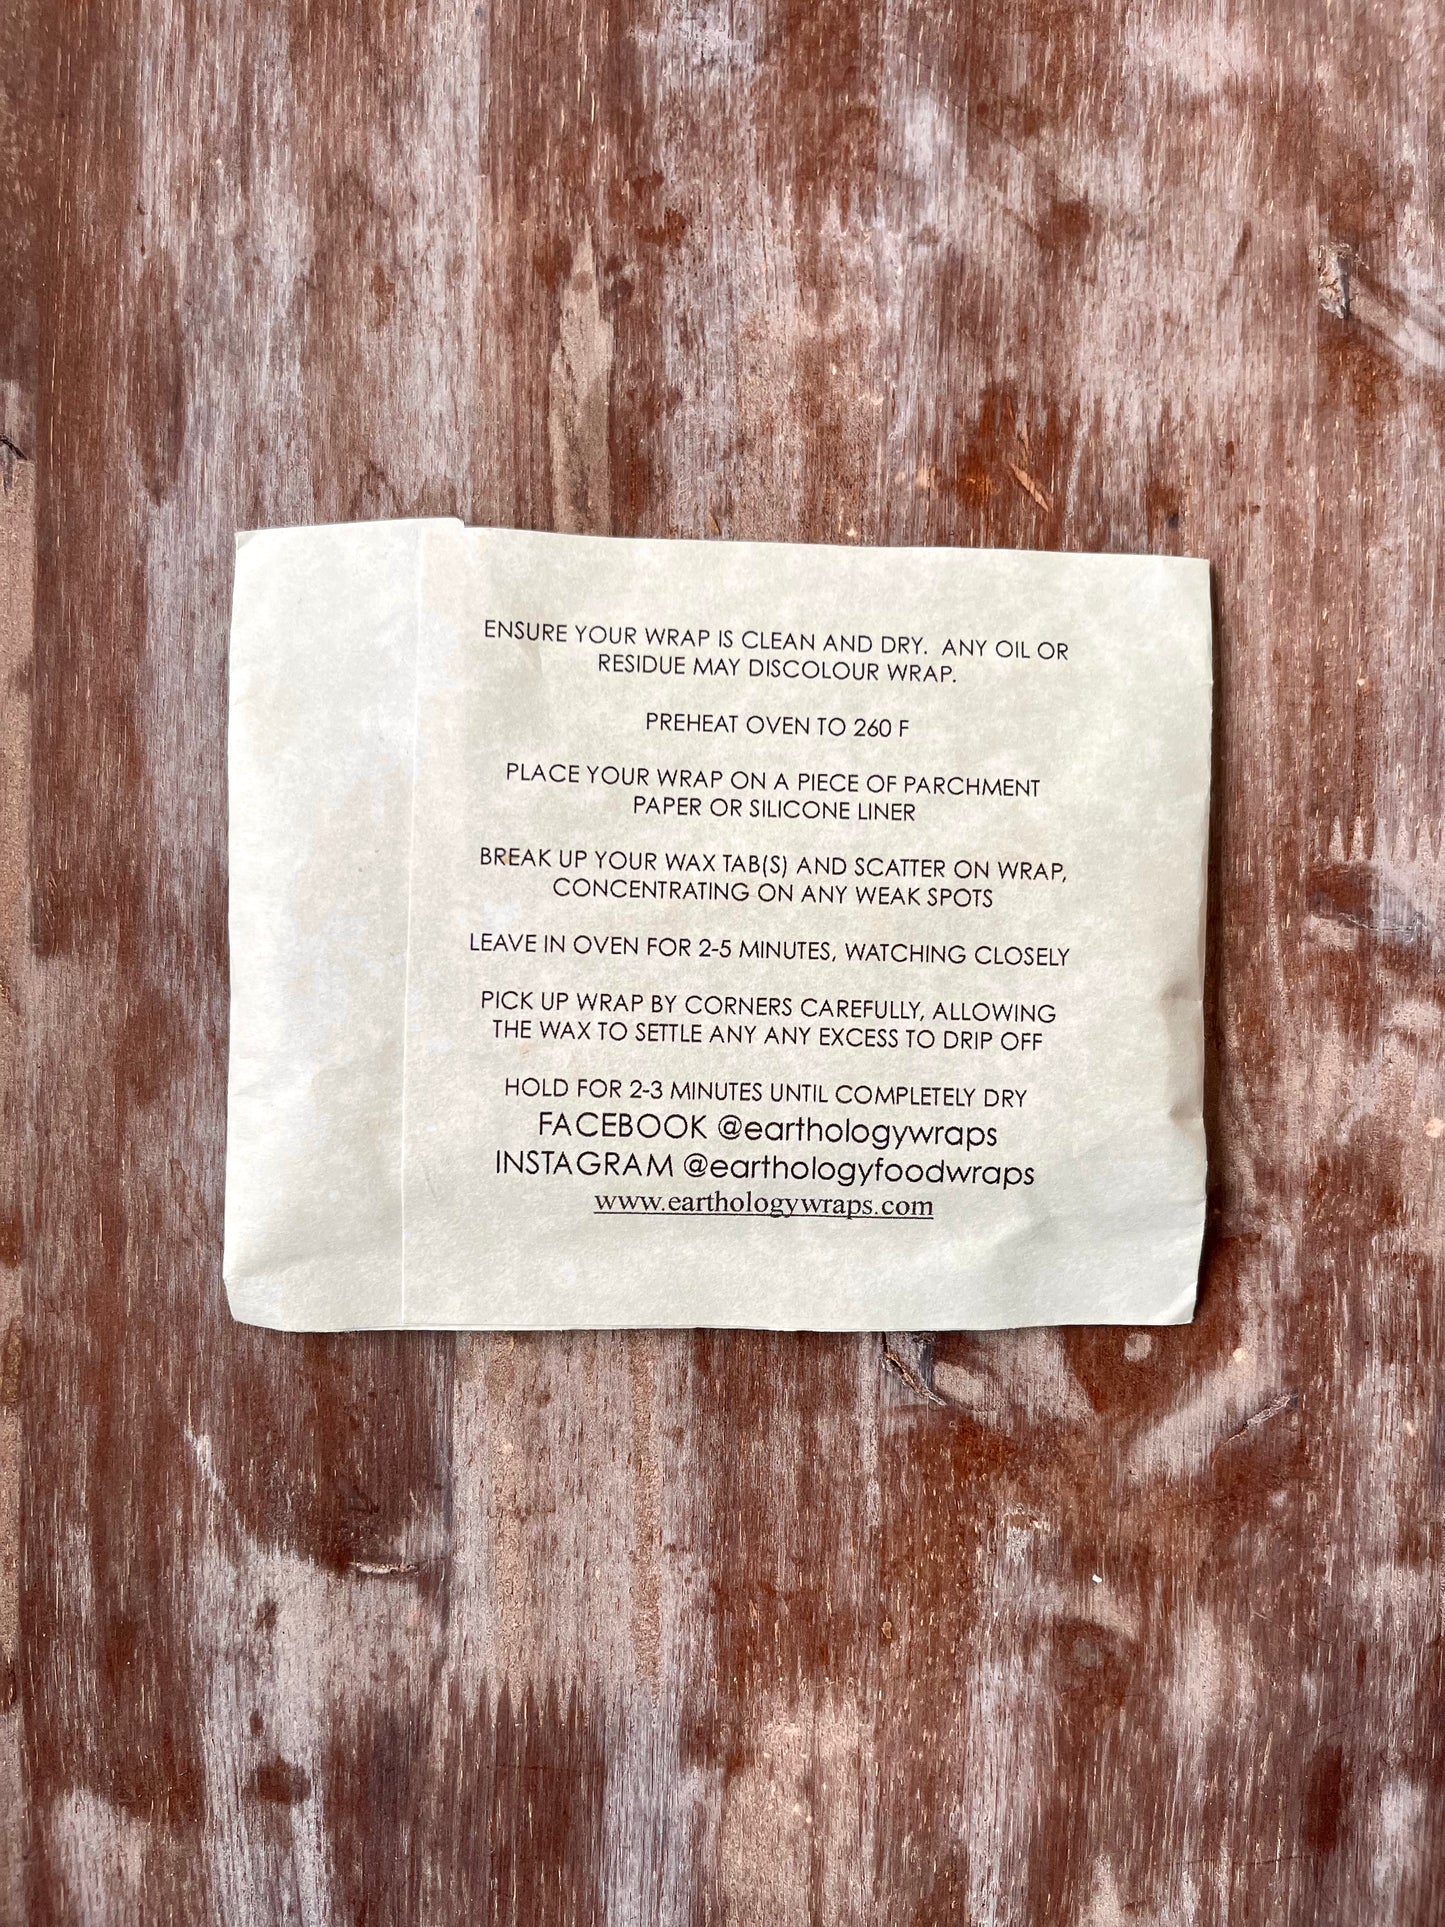 ENSURE YOUR WRAP IS CLEAN AND DRY.  ANY OIL OR
RESIDUE MAY DISCOLOUR WRAP.
PREHEAT OVEN TO 260 F
PLACE YOUR WRAP ON A PIECE OF PARCHMENT
PAPER OR SILICONE LINER
BREAK UP YOUR WAX TAB(S) AND SCATTER ON WRAP,
CONCENTRATING ON ANY WEAK SPOTS
LEAVE IN OVEN FOR 2-5 MINUTES, WATCHING CLOSELY
PICK UP WRAP BY CORNERS CAREFULLY, ALLOWING
THE WAX TO SETTLE ANY ANY EXCESS TO DRIP OFF
HOLD FOR 2-3 MINUTES UNTIL COMPLETELY DRY
FACEBOOK @earthologywraps
INSTAGRAM @earthologyfoodwraps
www.earthologywraps.com